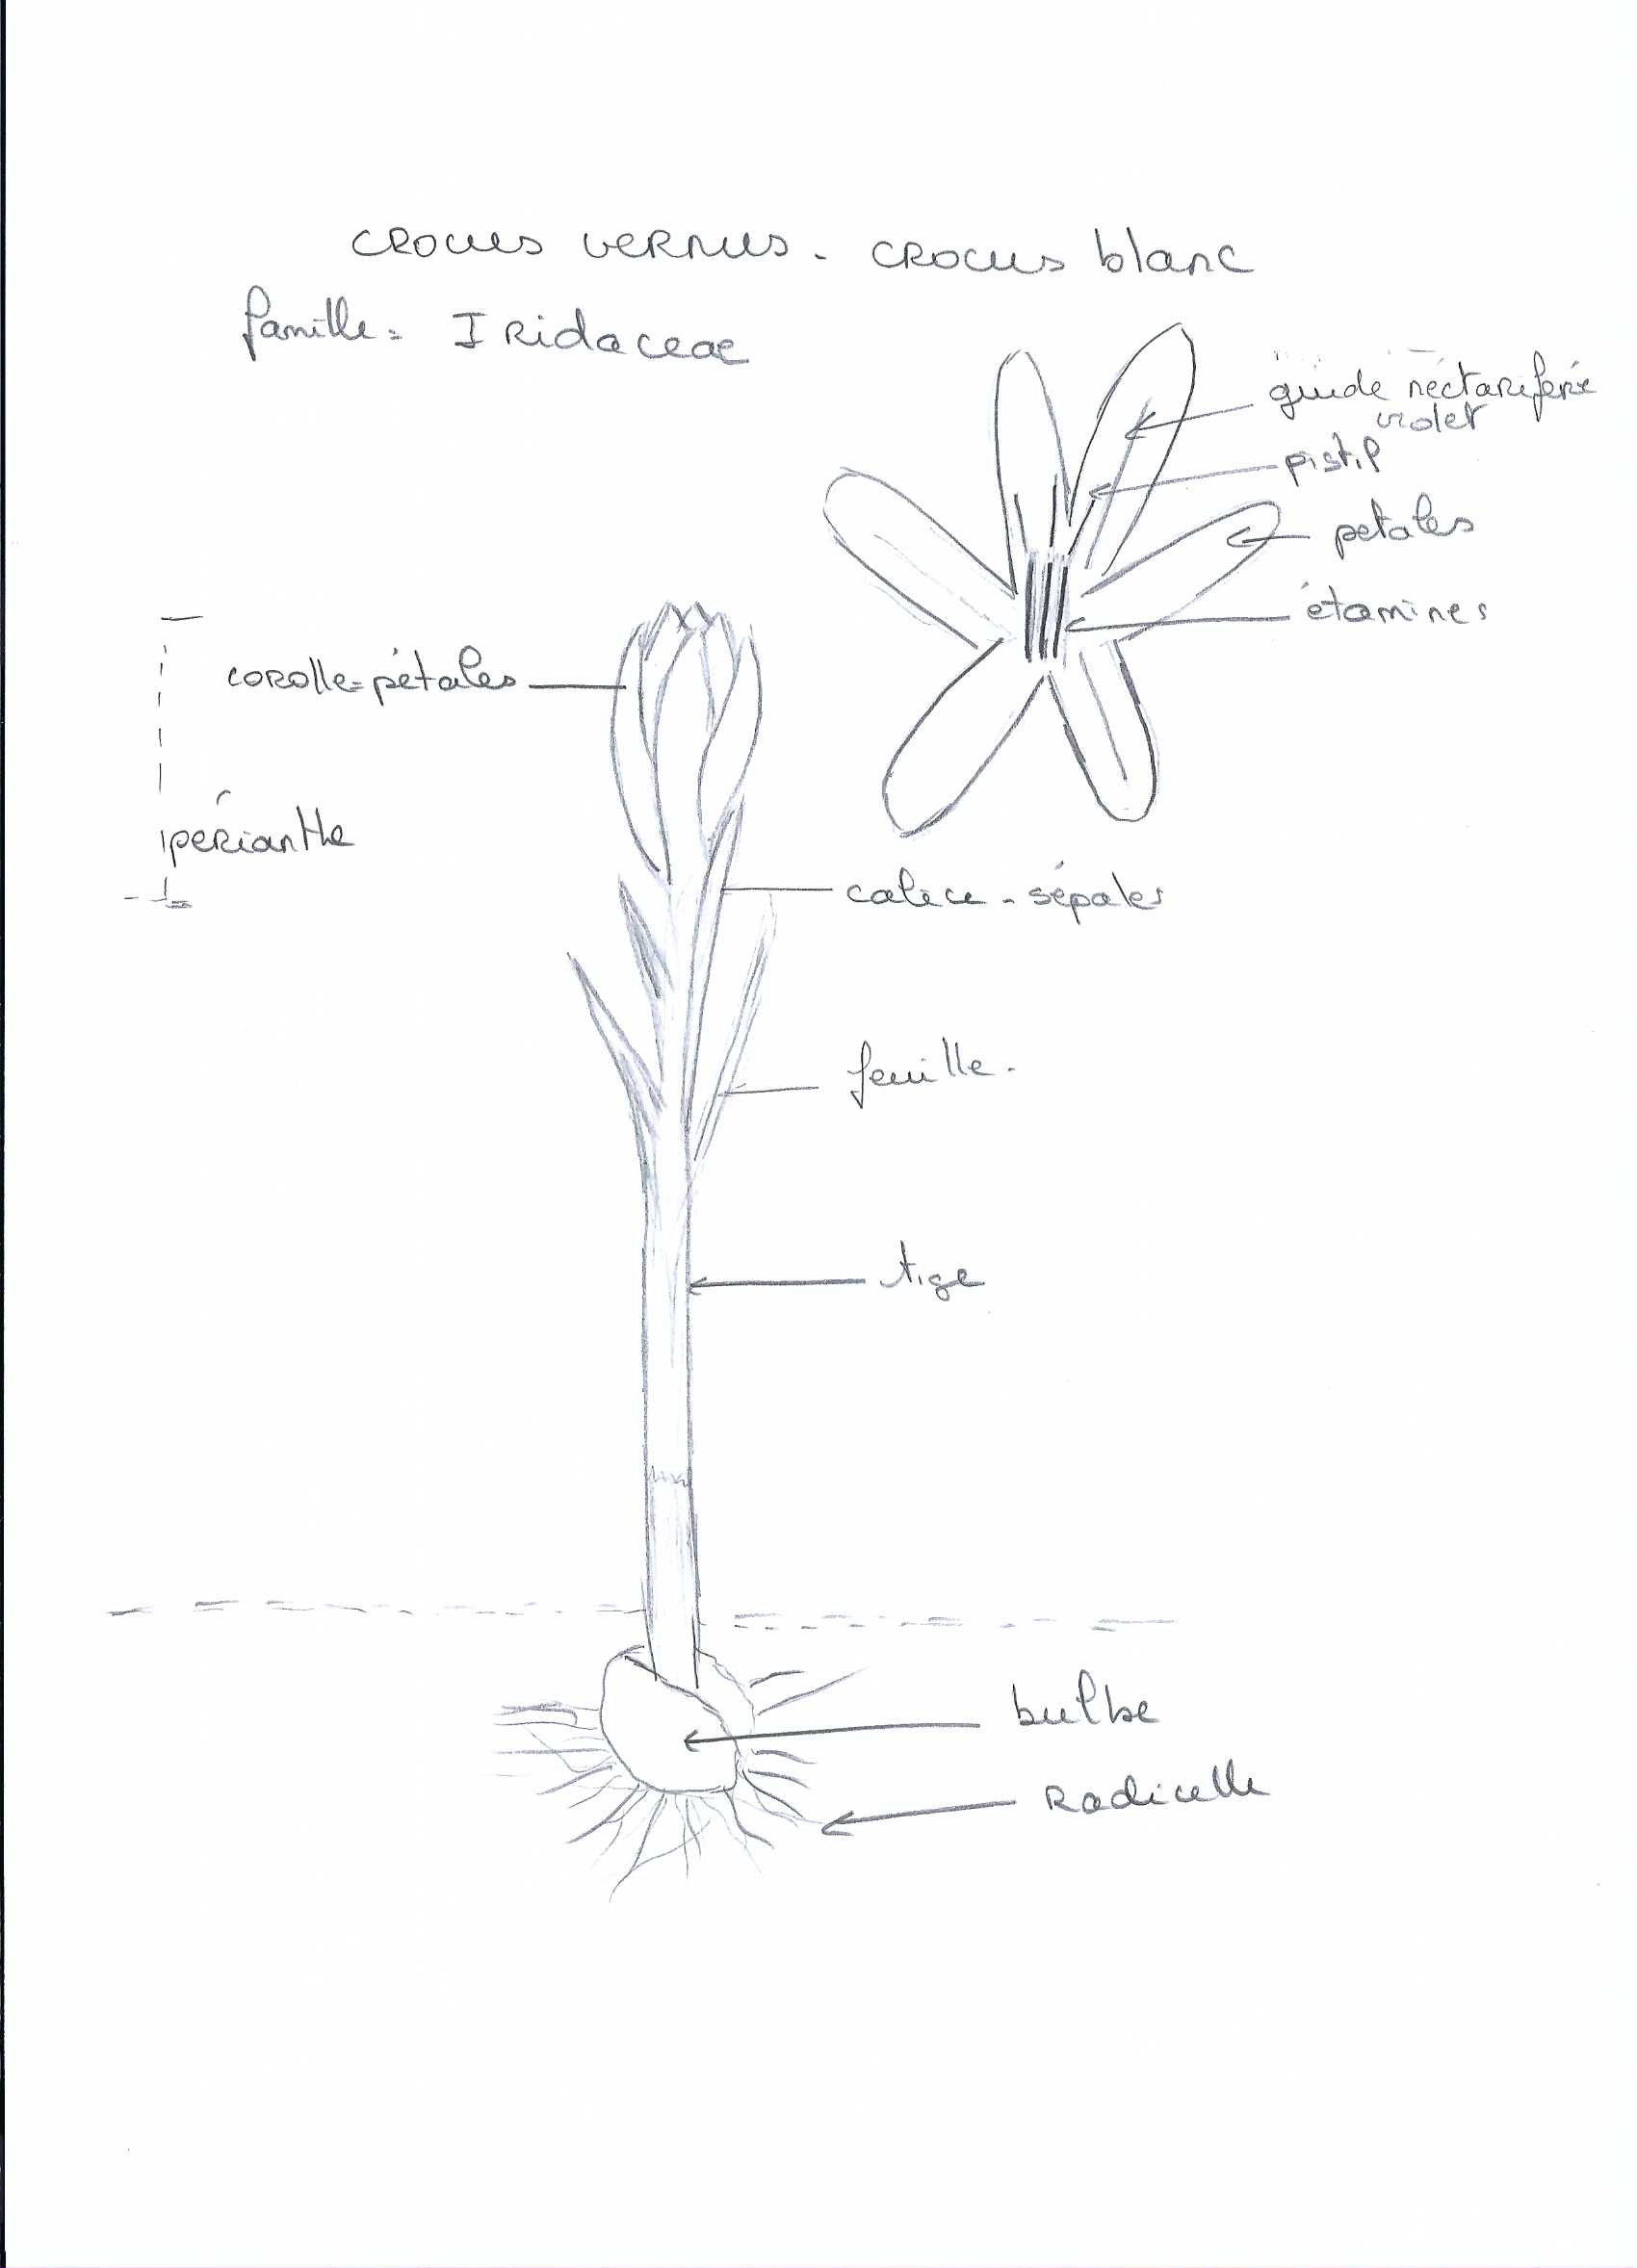 crocus vernus. crocus blanc
famille = Iridaceae
guide nectarifère
violet
pistil
pétales
étamines
corolle = pétales
périanthe
calice - sépales
feuille.
tige
bulbe
Radicelle